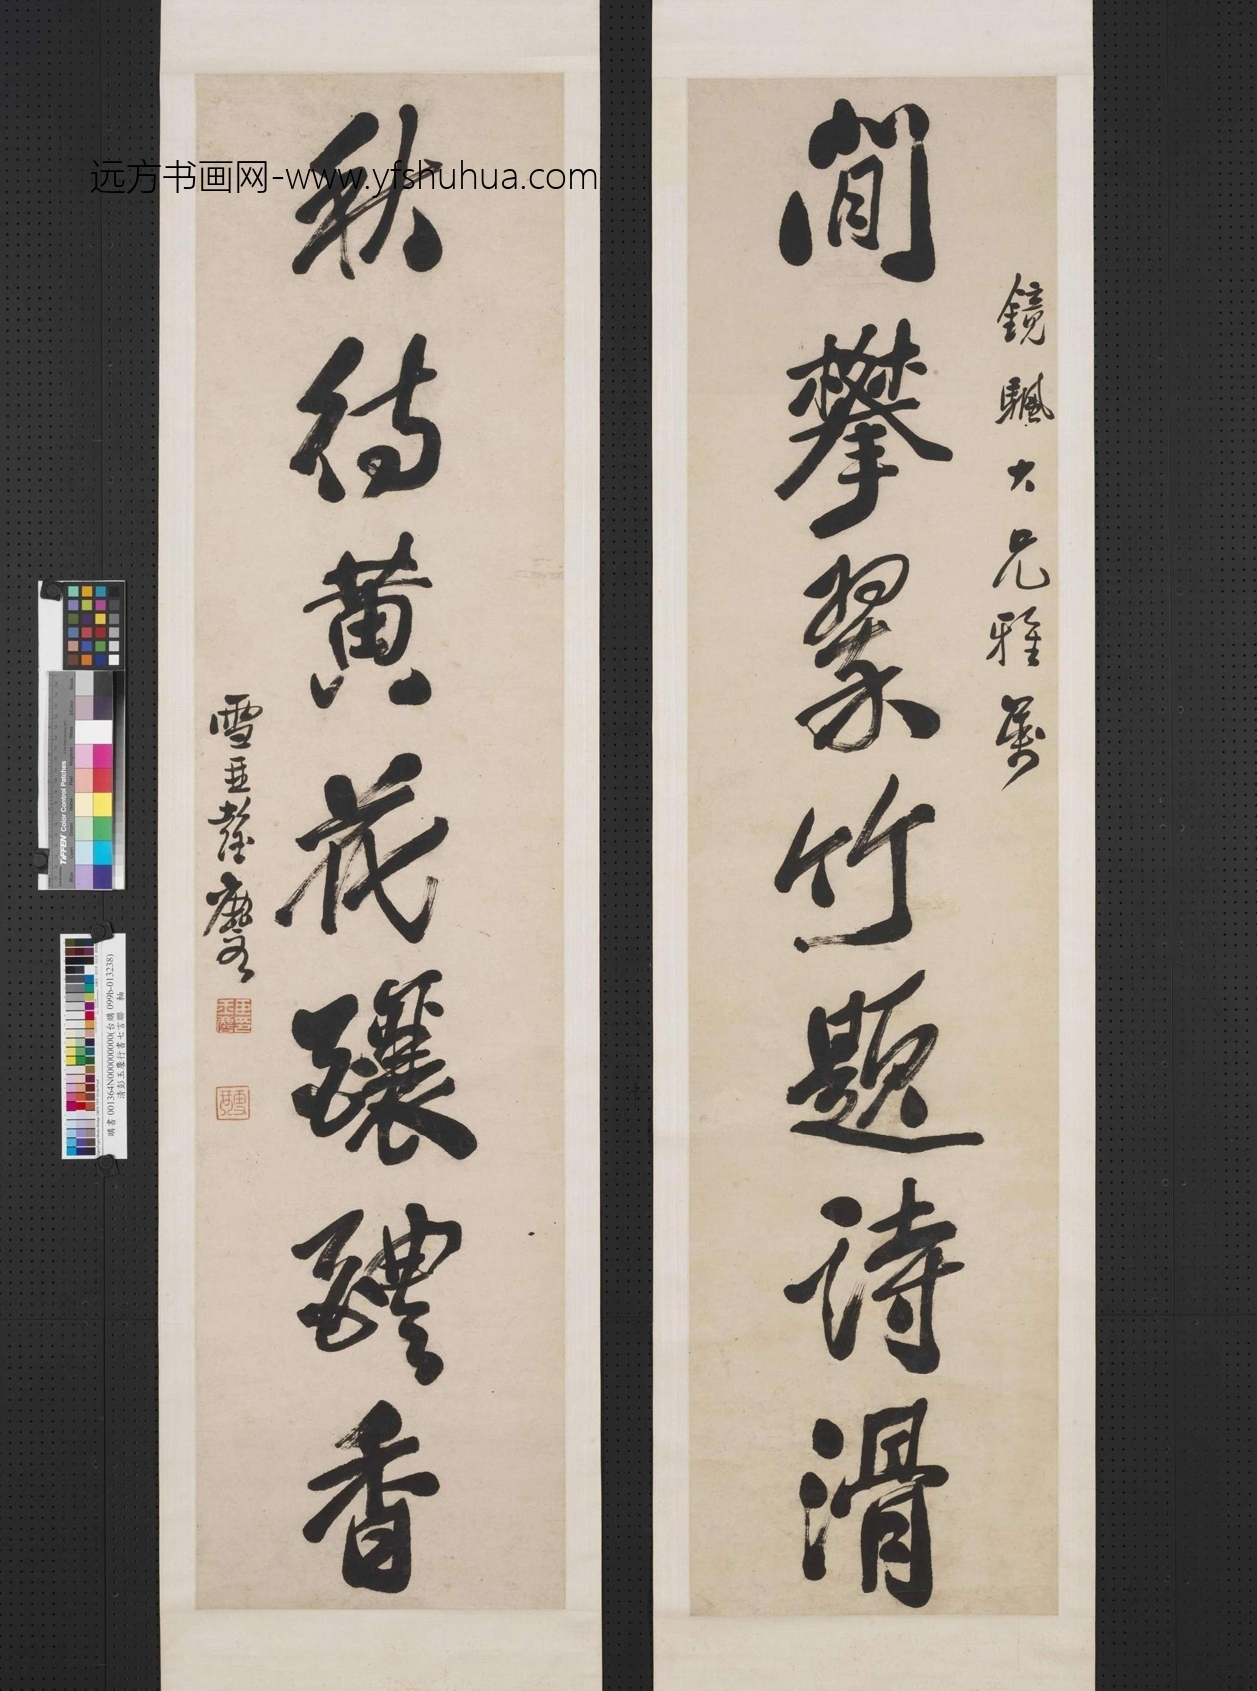 閒攀翠竹題詩滑
鏡颿大兄雅屬
秋待黃花釀醴香
雪琹彭玉麐
远方书画网-www.yfshuhua.com
TIFFEN Color Control Patches
購書 001364N000000000(台購 099b-013238)
清彭玉麐行書七言聯 軸